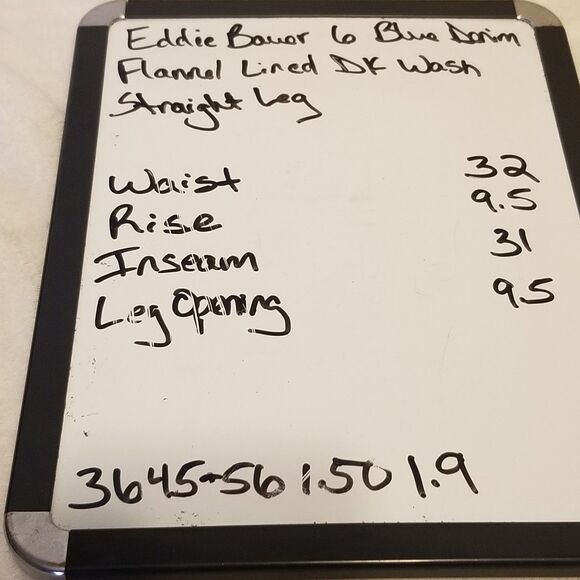 Eddie Bauer 6 Blue Denim
Flannel Lined DK Wash
Straight Leg
Waist 32
Rise 9.5
Inseam 31
Leg Opening 9.5
3645-56 1.50 1.9